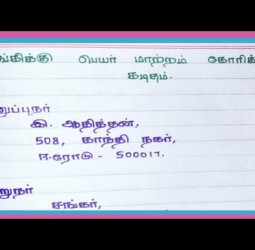 ங்கிக்கு பெயர் மாற்றம் கோரிக்
கடிதம்.
னுப்புநர்
இ. ஆதித்தன்,
508, காந்தி நகர்,
ஈரோடு - 500017.
றுநர்
சங்கர்,